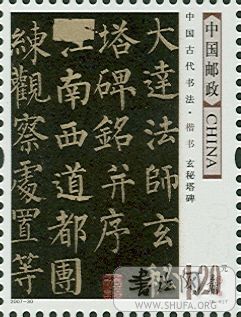 中国邮政 CHINA
中国古代书法·楷书 玄秘塔碑
大達法師玄
塔碑銘并序
江南西道都團
練觀察處置等
1.20元
2007-30
WWW.SHUFA.ORG